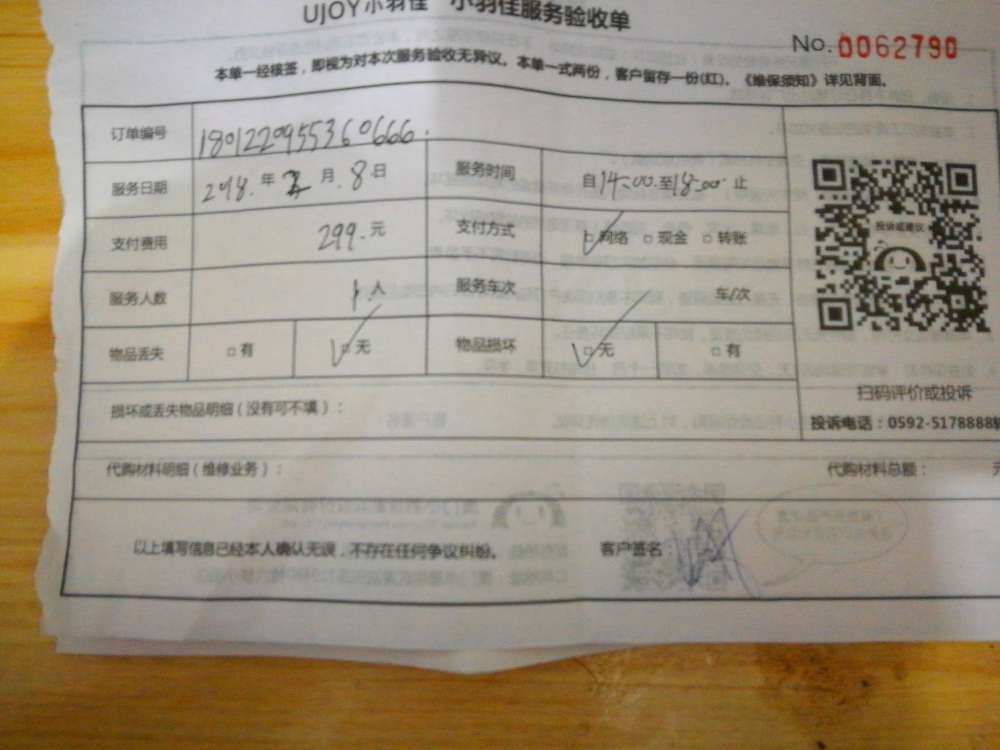 UJOY小羽佳 小羽佳服务验收单
No. 0062790
本单一经核签，即视为对本次服务验收无异议。本单一式两份，客户留存一份(红)。《维保须知》详见背面。
订单编号 1801229553 60666.
服务日期 2018. 年 2 月 8 日 服务时间 自14-00.至18-00.止
支付费用 299. 元 支付方式 ☑网络 □现金 □转账
服务人数 1 人 服务车次 车/次
物品丢失 □有 ☑无 物品损坏 ☑无 □有
投诉或建议
损坏或丢失物品明细（没有可不填）：
扫码评价或投诉
投诉电话：0592-5178888
代购材料明细（维修业务）： 代购材料总额：
以上填写信息已经本人确认无误，不存在任何争议纠纷。 客户签名：